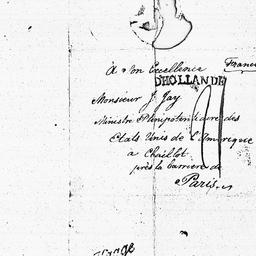 À Son Excellence
Franc
DHOLLANDE
Monsieur J. Jay
Ministre Plenipotentiaire des
Etats Unis de l'Amerique
à Chaillot
près la barriere de
Paris